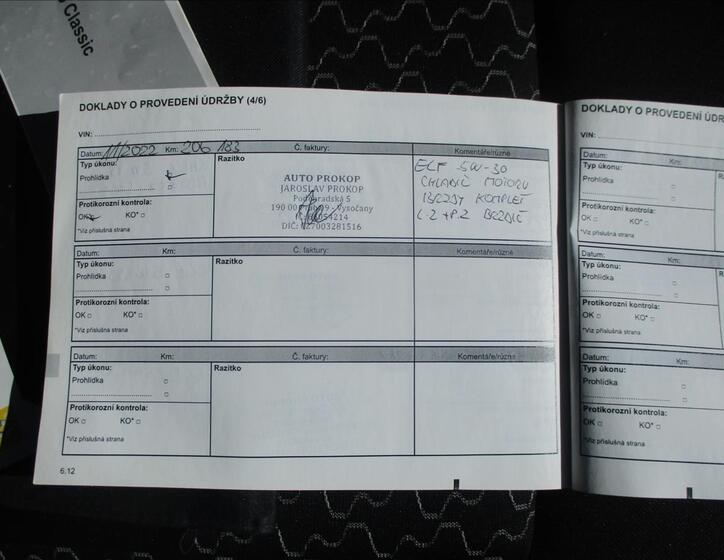 Classic
DOKLADY O PROVEDENÍ ÚDRŽBY (4/6)
VIN:
Datum: 11/2022 Km: 206 183 Č. faktury: Komentáře/různé
Typ úkonu:
Prohlídka
Protikorozní kontrola:
OK KO*
*Viz příslušná strana
Razítko
AUTO PROKOP
JAROSLAV PROKOP
Poděbradská 5
190 00 Praha 9 - Vysočany
DIČ:
ELF 5W-30
CHLADIČ MOTORU
BRZDY KOMPLET
BRZDIČ
Datum: Km: Č. faktury: Komentáře/různé
Typ úkonu:
Prohlídka
Protikorozní kontrola:
OK KO*
*Viz příslušná strana
Razítko
Datum: Km: Č. faktury: Komentáře/různé
Typ úkonu:
Prohlídka
Protikorozní kontrola:
OK KO*
*Viz příslušná strana
Razítko
6.12
DOKLADY O PROVEDENÍ ÚDR
VIN:
Datum:
Typ úkonu:
Prohlídka
Protikorozní kontrola:
OK KO*
*Viz příslušná strana
Datum:
Typ úkonu:
Prohlídka
Protikorozní kontrola:
OK KO*
*Viz příslušná strana
Datum: Km:
Typ úkonu:
Prohlídka
Protikorozní kontrola:
OK KO*
*Viz příslušná strana